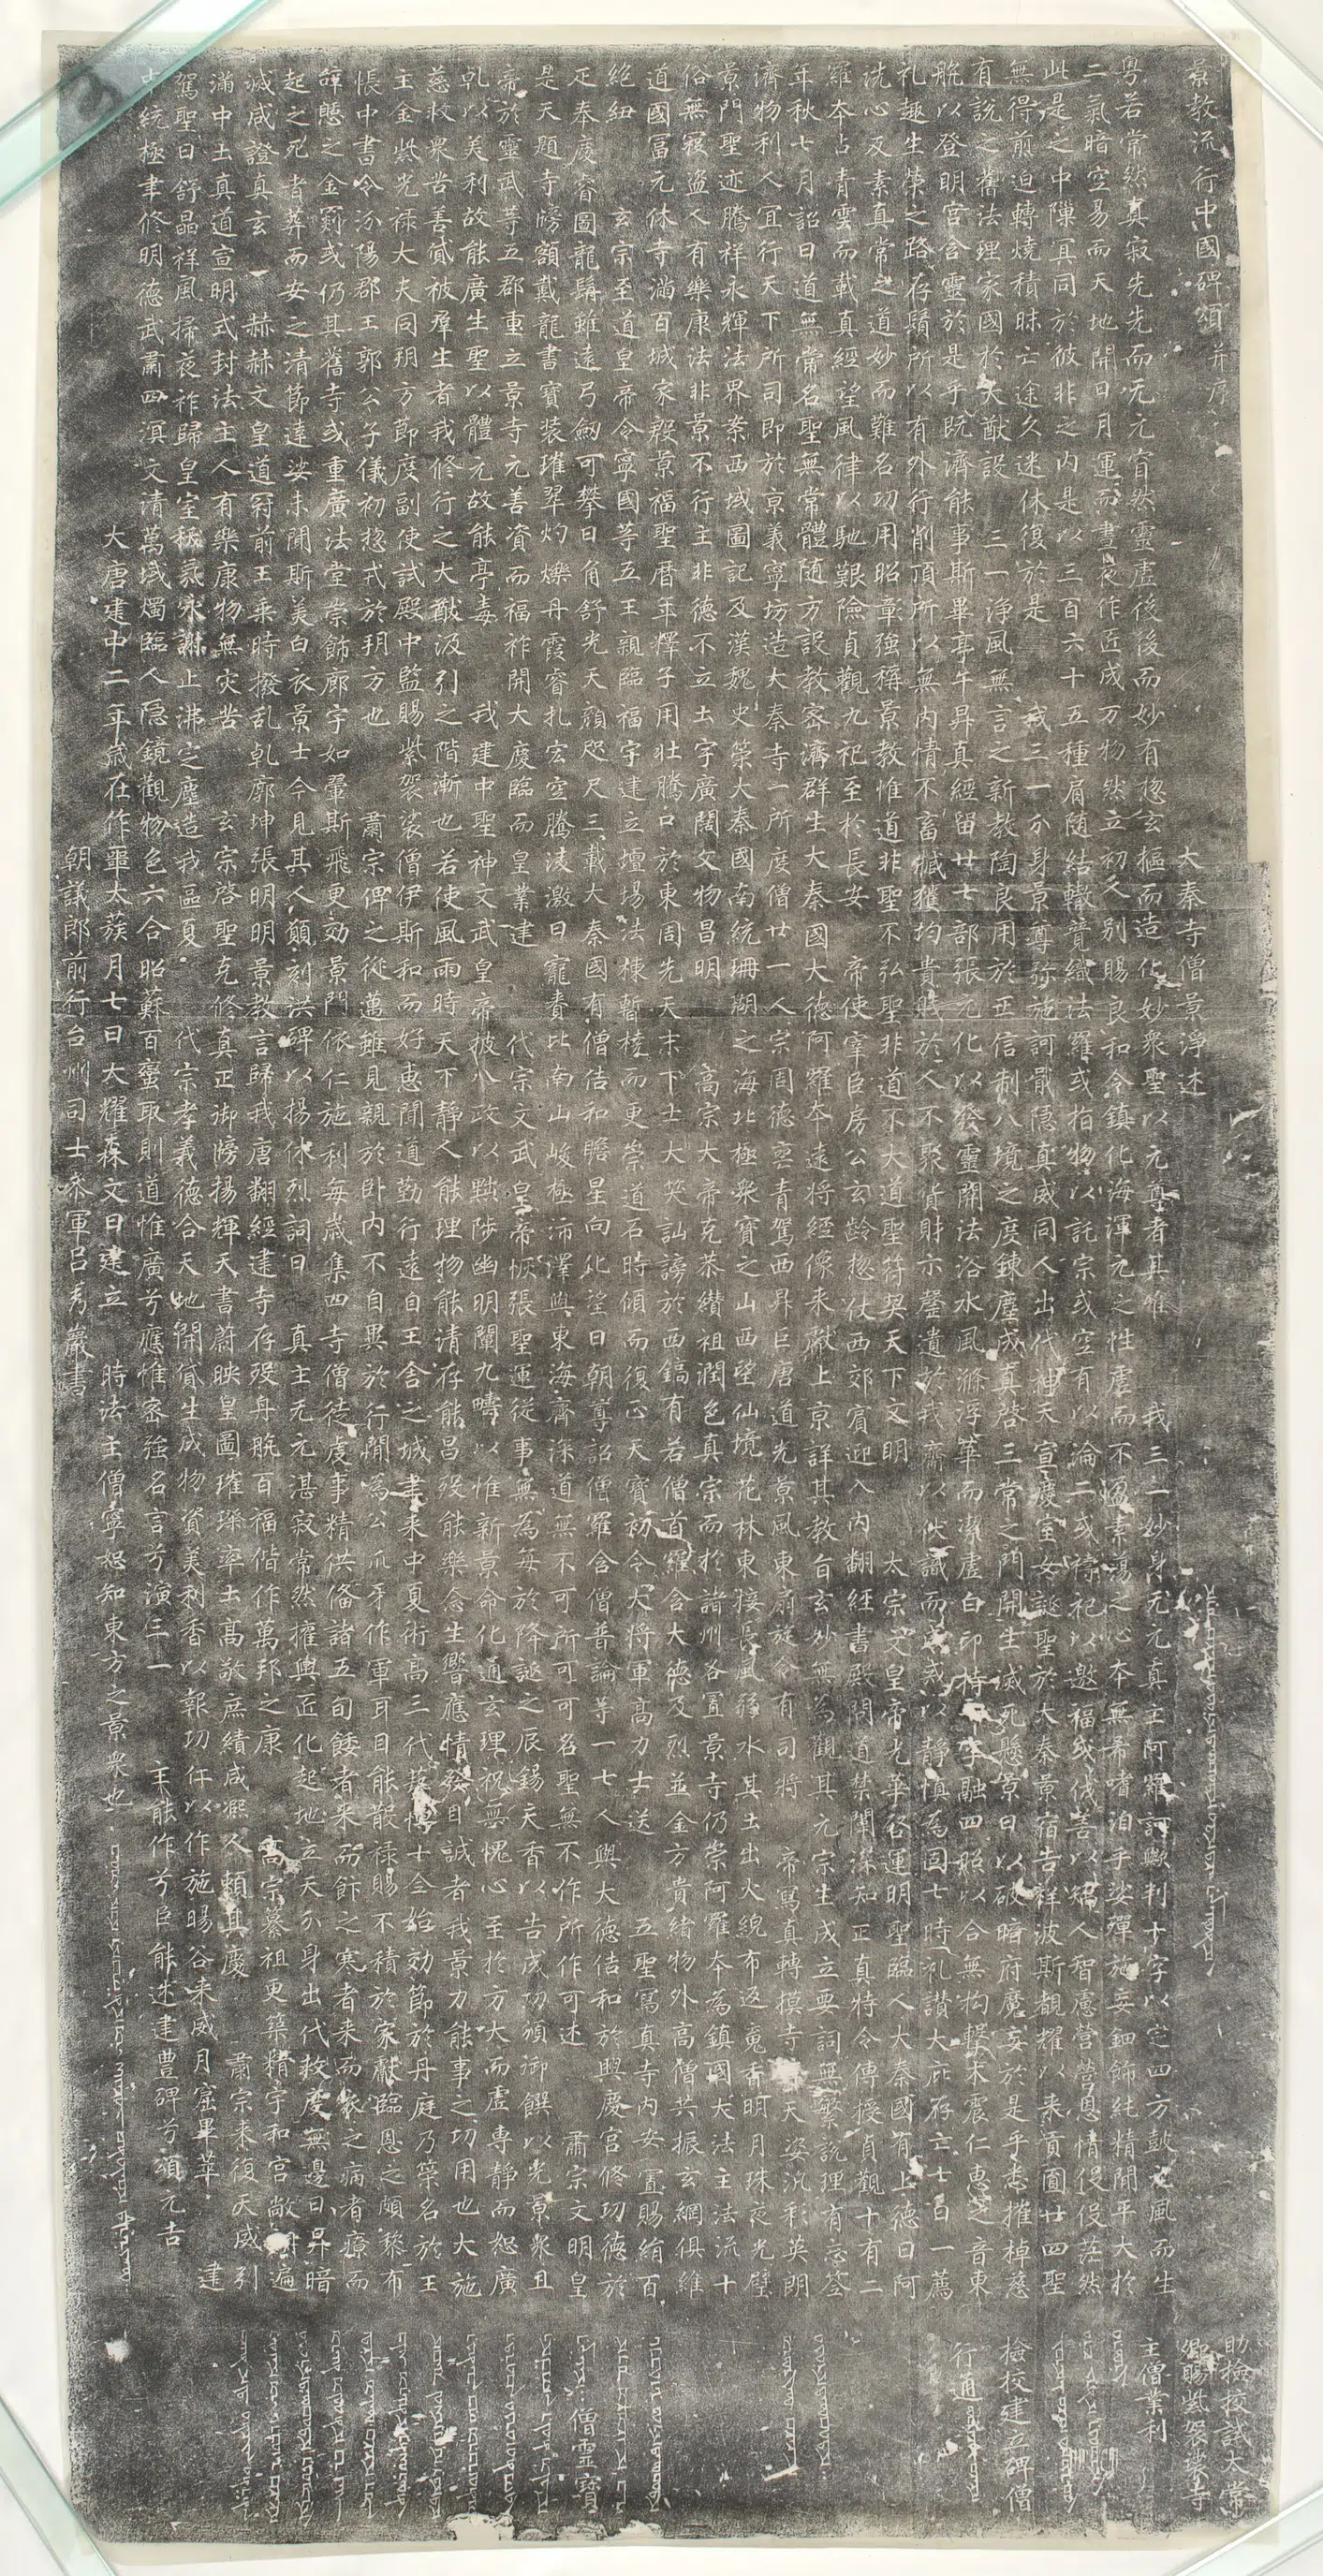 景教流行中國碑頌 并序
大秦寺僧景淨述
粵若常然真寂先先而无元窅然靈虛後後而妙有惣玄樞而造化妙眾聖以元尊者其唯 我三一妙身无元真主阿羅訶歟判十字以定四方鼓元風而生
二氣暗空易而天地開日月運而晝夜作匠成万物然立初人別賜良和令鎮化海渾元之性虛而不盈素蕩之心本無希嗜洎乎娑殫施妄鈿飾純精閒平大於
此是之中隟冥同於彼非之內是以三百六十五種肩隨結轍競織法羅或指物以託宗或空有以淪二或禱祀以邀福或伐善以矯人智慮營營恩情役役茫然
無得煎迫轉燒積昧亡途久迷休復於是 我三一分身景尊弥施訶戢隱真威同人出代神天宣慶室女誕聖於大秦景宿告祥波斯覩耀以來貢圓廿四聖
有說之舊法理家國於大猷設 三一淨風無言之新教陶良用於正信制八境之度鍊塵成真啓三常之門開生滅死懸景日以破暗府魔妄於是乎悉摧棹慈
航以登明宮含靈於是乎既濟能事斯畢亭午昇真經留廿七部張元化以發靈關法浴水風滌浮華而潔虛白印持十字融四照以合無拘擊木震仁惠之音東
礼趣生榮之路存鬚所以有外行削頂所以無內情不畜臧獲均貴賤於人不聚貨財示罄遺於我齋以伏識而成戒以靜慎為固七時礼讚大庇存亡七日一薦
洗心反素真常之道妙而難名功用昭彰強稱景教惟道非聖不弘聖非道不大道聖符契天下文明 太宗文皇帝光華啓運明聖臨人大秦國有上德曰阿
羅本占青雲而載真經望風律以馳艱險貞觀九祀至於長安 帝使宰臣房公玄齡惣仗西郊賓迎入內翻經書殿問道禁闈深知正真特令傳授貞觀十有二
年秋七月詔曰道無常名聖無常體隨方設教密濟群生大秦國大德阿羅本遠將經像來獻上京詳其教旨玄妙無為觀其元宗生成立要詞無繁說理有忘筌
濟物利人宜行天下所司即於京義寧坊造大秦寺一所度僧廿一人宗周德喪青駕西昇巨唐道光景風東扇旋令有司將 帝寫真轉摸寺壁天姿汎彩英朗
景門聖迹騰祥永輝法界案西域圖記及漢魏史策大秦國南統珊瑚之海北極眾寶之山西望仙境花林東接長風弱水其土出火綄布返魂香明月珠夜光璧
俗無寇盜人有樂康法非景不行主非德不立土宇廣闊文物昌明 高宗大帝克恭纘祖潤色真宗而於諸州各置景寺仍崇阿羅本為鎮國大法主法流十
道國富元休寺滿百城家殷景福聖曆年釋子用壯騰口於東周先天末下士大笑訕謗於西鎬有若僧首羅含大德及烈並金方貴緒物外高僧共振玄網俱維
絕紐 玄宗至道皇帝令寧國等五王親臨福宇建立壇場法棟暫橈而更崇道石時傾而復正天寶初令大將軍高力士送 五聖寫真寺內安置賜絹百
疋奉慶睿圖龍髯雖遠弓劒可攀日角舒光天顏咫尺三載大秦國有僧佶和瞻星向化望日朝尊詔僧羅含僧普論等一七人與大德佶和於興慶宮修功德於
是天題寺牓額戴龍書寶裝璀翠灼爍丹霞睿扎宏空騰凌激日寵賚比南山峻極沛澤與東海齊深道無不可所可可名聖無不作所作可述 肅宗文明皇
帝於靈武等五郡重立景寺元善資而福祚開大慶臨而皇業建 代宗文武皇帝恢張聖運從事無為每於降誕之辰錫天香以告成功頒御饌以光景眾且
乹以美利故能廣生聖以體元故能亭毒 我建中聖神文武皇帝披八政以黜陟幽明闡九疇以惟新景命化通玄理祝無愧心至於方大而虛專靜而恕廣
慈救眾苦善貸被群生者我修行之大猷汲引之階漸也若使風雨時天下靜人能理物能清存能昌歿能樂念生響應情發目誠者我景力能事之功用也大施
主金紫光祿大夫同朔方節度副使試殿中監賜紫袈裟僧伊斯和而好惠聞道勤行遠自王舍之城聿來中夏術高三代藝博十全始効節於丹庭乃策名於王
帳中書令汾陽郡王郭公子儀初惣戎於朔方也 肅宗俾之從邁雖見親於臥內不自異於行間為公爪牙作軍耳目能散祿賜不積於家獻臨恩之頗黎布
辭憩之金罽或仍其舊寺或重廣法堂崇飾廊宇如翬斯飛更効景門依仁施利每歲集四寺僧徒虔事精供備諸五旬餧者來而飰之寒者來而衣之病者療而
起之死者葬而安之清節達娑未聞斯美白衣景士今見其人願刻洪碑以揚休烈詞曰 真主无元湛寂常然權輿匠化起地立天分身出代救度無邊日昇暗
滅咸證真玄 赫赫文皇道冠前王乘時撥乱乹廓坤張明明景教言歸我唐翻經建寺存歿舟航百福偕作萬邦之康 高宗纂祖更築精宇和宮敞朗遍
滿中土真道宣明式封法主人有樂康物無灾苦 玄宗啓聖克修真正御牓揚輝天書蔚映皇圖璀璨率土高敬庶績咸熙人賴其慶 肅宗來復天威引
駕聖日舒晶祥風掃夜祚歸皇室祅氛永謝止沸定塵造我區夏 代宗孝義德合天地開貸生成物資美利香以報功仁以作施暘谷來威月窟畢萃 建
中統極聿修明德武肅四溟文清萬域燭臨人隱鏡觀物色六合昭蘇百蠻取則道惟廣兮應惟密強名言兮演三一 主能作兮臣能述建豊碑兮頌元吉
大唐建中二年歲在作噩太蔟月七日大耀森文日建立 時法主僧寧恕知東方之景眾也
朝議郎前行台州司士參軍呂秀巖書
助撿挍試太常
卿賜紫袈裟寺
主僧業利
撿挍建立碑僧
行通
僧靈寶